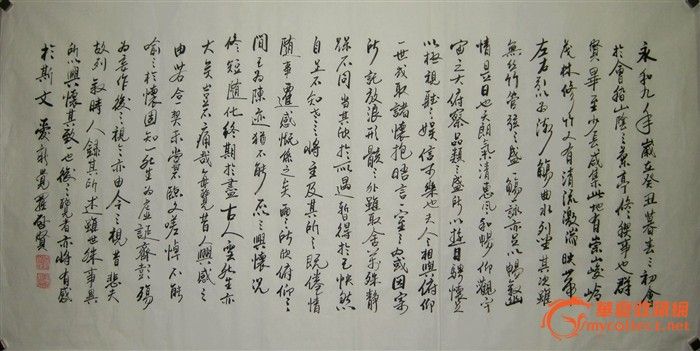 永和九年歲在癸丑暮春之初會
於會稽山陰之蘭亭修稧事也群
賢畢至少長咸集此地有崇山峻嶺
茂林修竹又有清流激湍映帶
左右引以為流觴曲水列坐其次雖
無絲竹管弦之盛一觴一詠亦足以暢敘幽
情是日也天朗氣清惠風和暢仰觀宇
宙之大俯察品類之盛所以遊目騁懷足
以極視聽之娛信可樂也夫人之相與俯仰
一世或取諸懷抱晤言一室之內或因寄
所託放浪形骸之外雖取舍萬殊靜
躁不同當其欣於所遇暫得於己快然
自足不知老之將至及其所之既倦情
隨事遷感慨係之矣向之所欣俯仰之
間已為陳迹猶不能不以之興懷況
修短隨化終期於盡古人云死生亦
大矣豈不痛哉每覽昔人興感之
由若合一契未嘗臨文嗟悼不能
喻之於懷固知一死生為虛誕齊彭殤
為妄作後之視今亦由今之視昔悲夫
故列敘時人錄其所述雖世殊事異
所以興懷其致一也後之覽者亦將有感
於斯文 愛新覺羅
華夏收藏網
mycollect.net